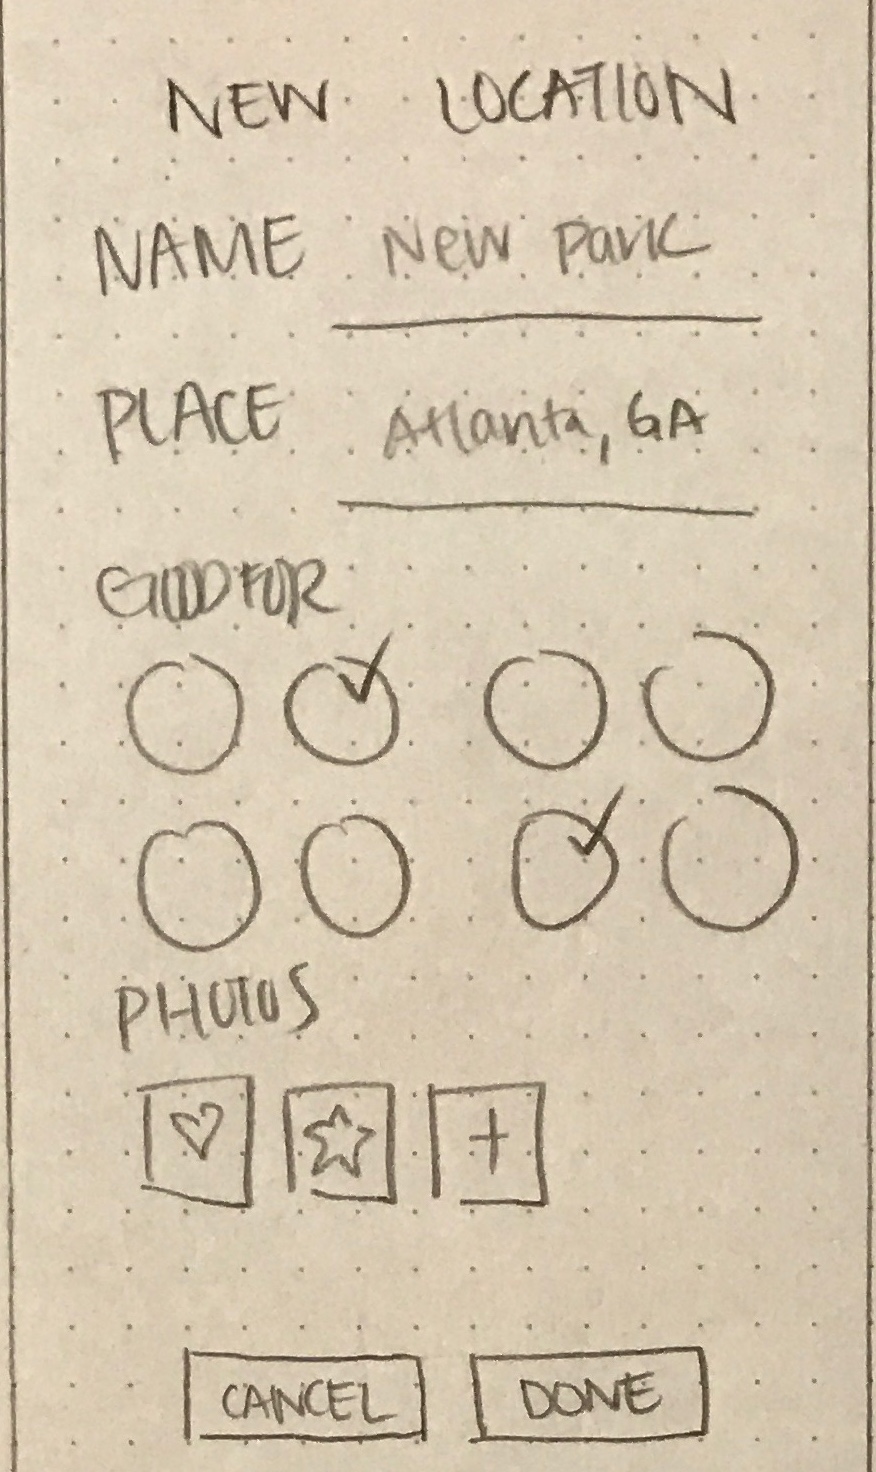 NEW LOCATION
NAME New Park
PLACE Atlanta, GA
GOOD FOR
PHOTOS
CANCEL DONE